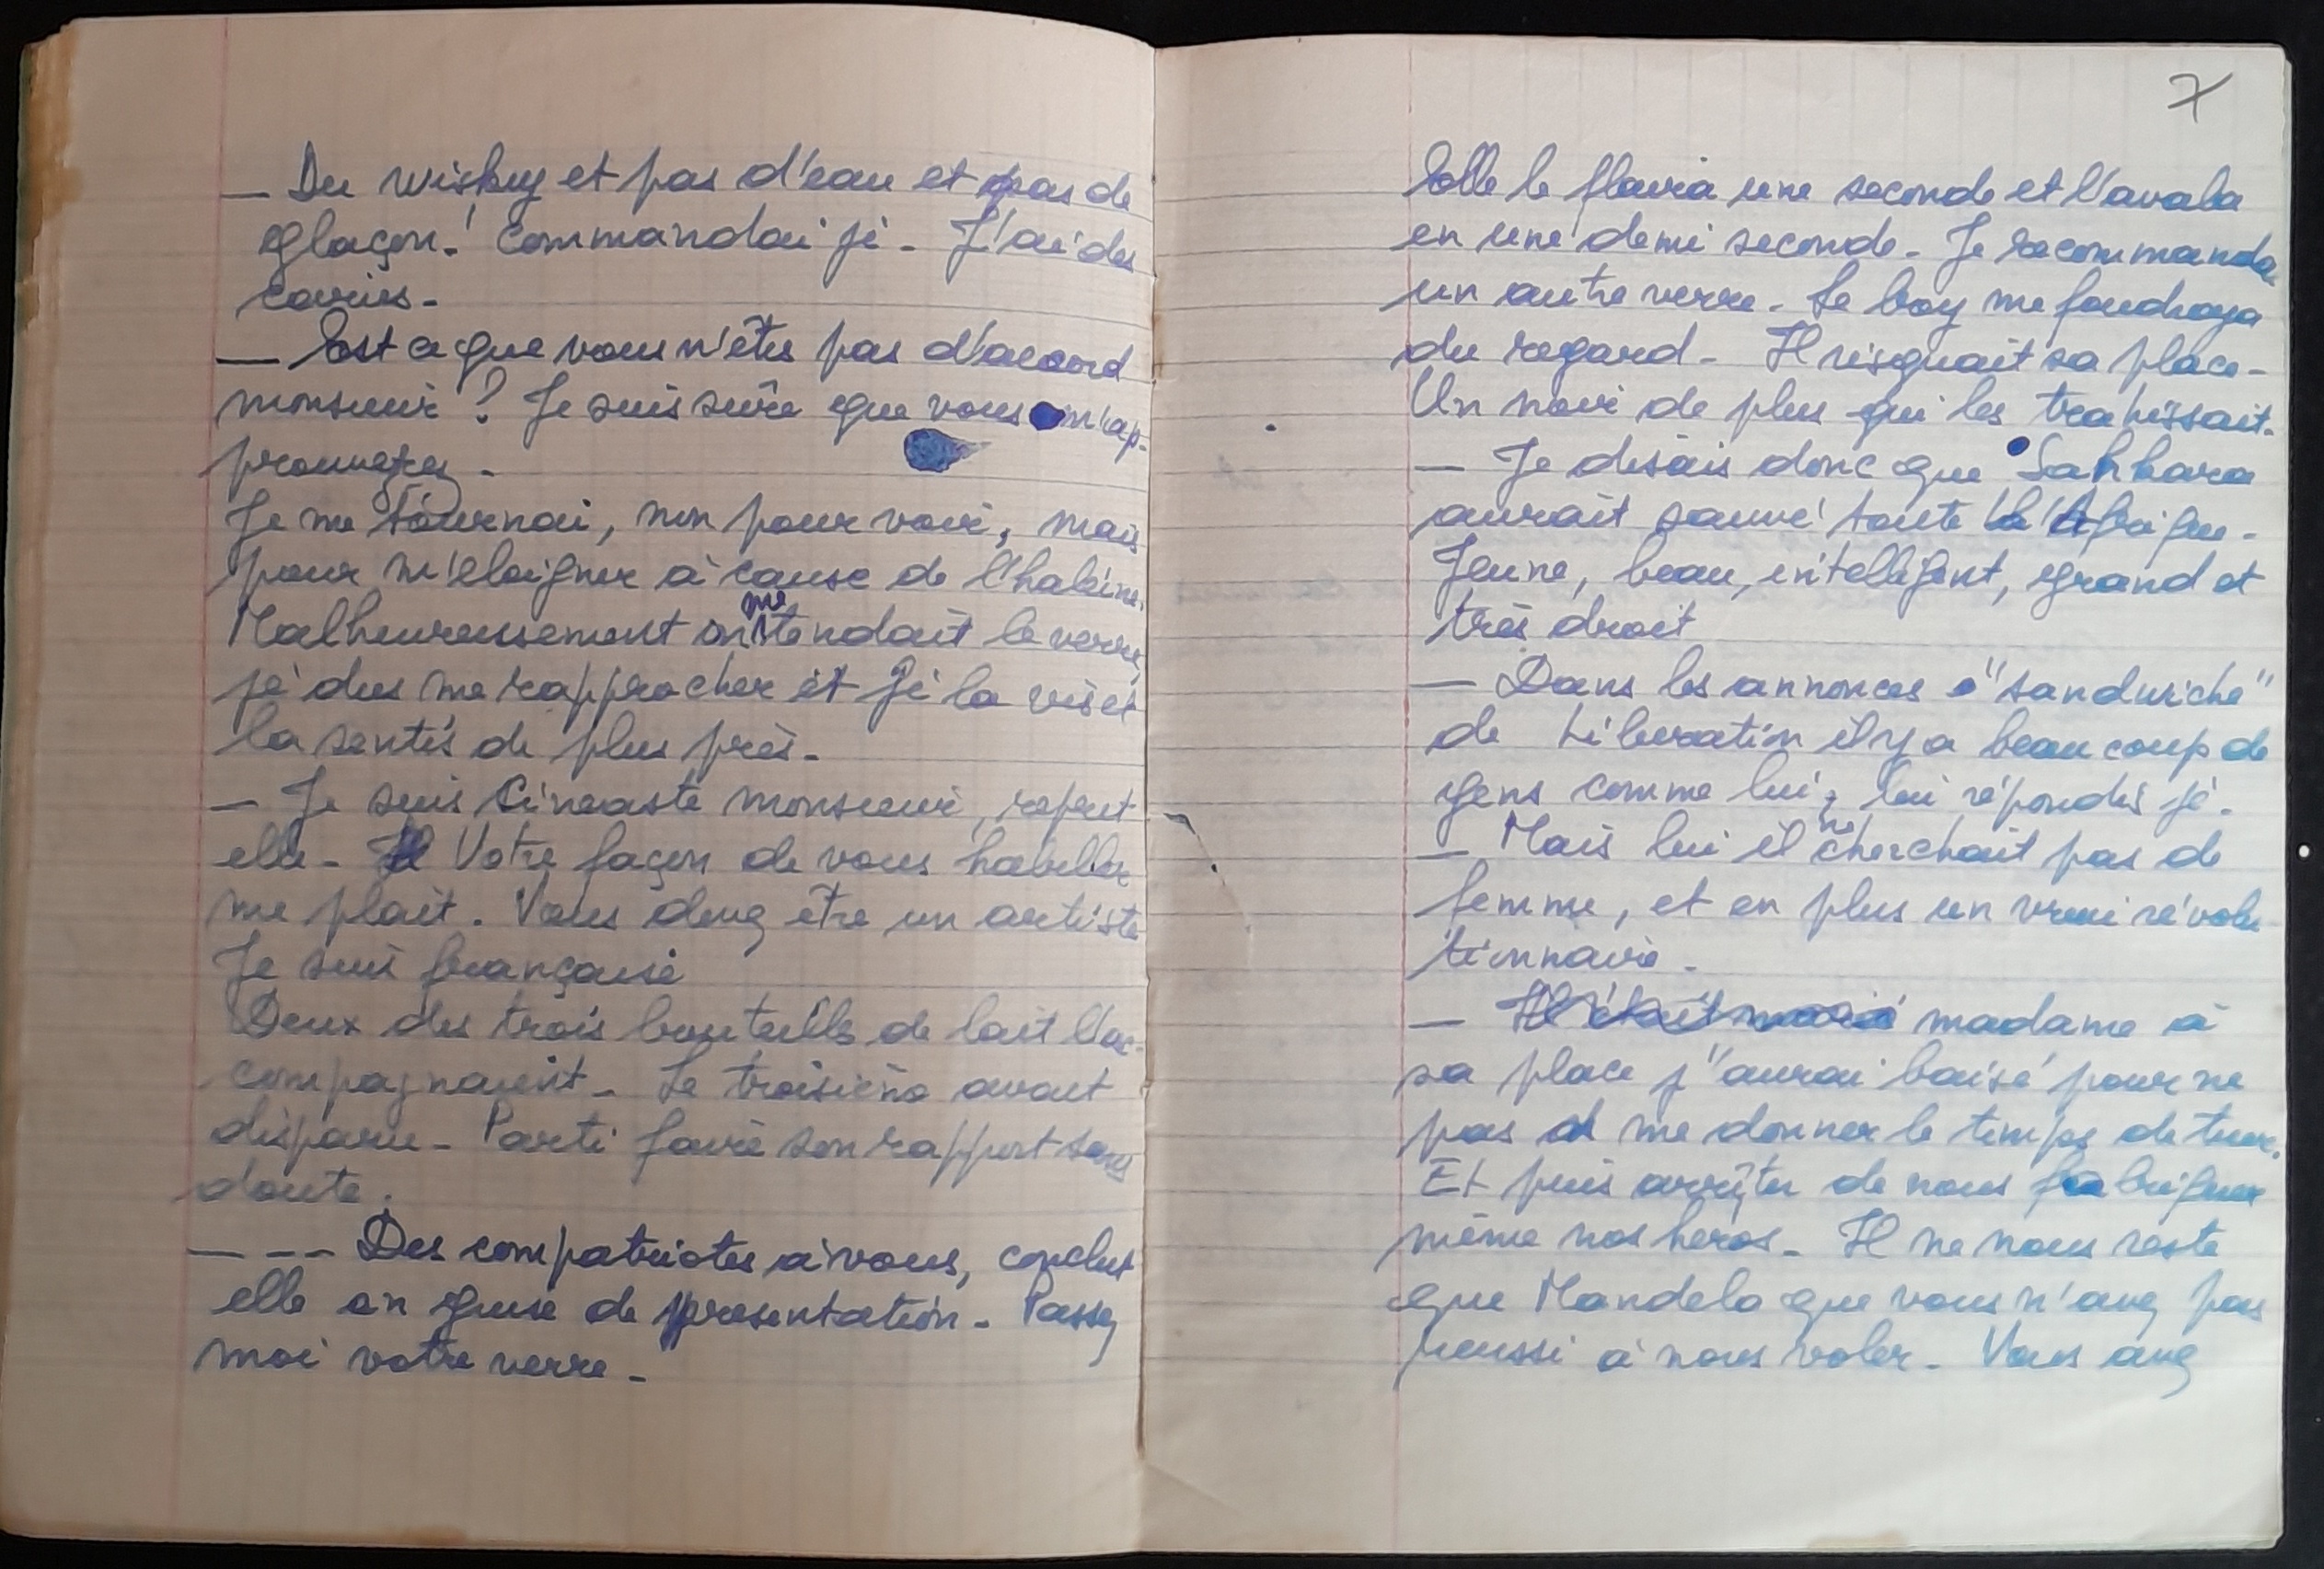 — Du wisky et pas d'eau et pas de
glaçon! Commandai je - J'ai des
caries -
— Est ce que vous n'êtes pas d'accord
monsieur? Je suis sûre que vous m'ap-
prouvez -
Je me tournai, non pour voir, mais
pour m'eloigner à cause de l'haleine.
Malheureusement on me tendait le verre,
je dus me rapprocher et je la vis et
la sentis de plus près -
— Je suis Cinéaste monsieur, reprit
elle - Votre façon de vous habiller
me plait. Vous devez être un artiste
Je suis française
Deux des trois bouteilles de lait l'ac-
compagnaient - Le troisième avait
disparu - Parti faire son rapport sans
doute.
— — — Des compatriotes à vous, conclut
elle en guise de presentation - Passez
moi votre verre -
7
Elle le flaira une seconde et l'avala
en une demi seconde - Je recommandai
un autre verre - Le boy me foudroya
du regard - Il risquait sa place -
Un noir de plus qui les trahissait.
— Je disais donc que Sankara
aurait sauvé toute l'Afrique -
Jeune, beau, intelligent, grand et
très droit
— Dans les annonces "sandwiche"
de Liberation il y a beaucoup de
gens comme lui, lui répondis je -
— Mais lui il ne cherchait pas de
femme, et en plus un vrai révolu
tionnaire -
— madame à
sa place j'aurai baisé pour ne
pas me donner le temps de tuer.
Et puis arrêter de nous fabriquer
même nos heros - Il ne nous reste
que Mandela que vous n'avez pas
reussi à nous voler - Vous avez